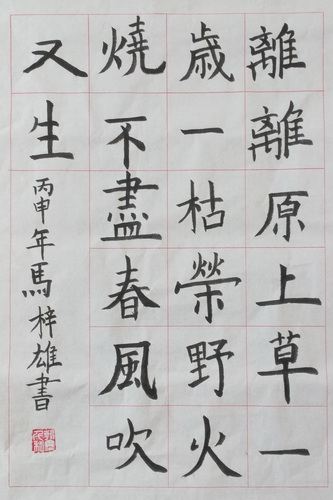 離離原上草一
歳一枯榮野火
燒不盡春風吹
又生
丙申年馬梓雄書